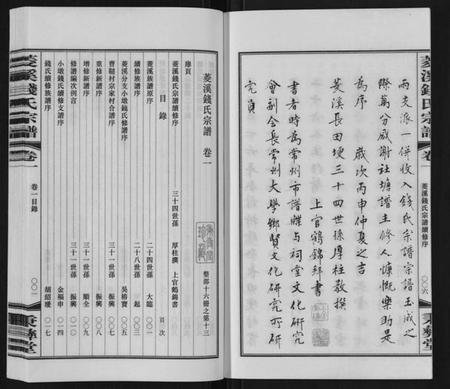 而支派一併收入錢氏宗譜宗譜玉成之
際萬分感謝社塘譜主修人慷慨樂助是
為序　歲次丙申仲夏之吉
菱溪長田埂三十四世孫厚柱敬撰
上官鶴錦拜書
書者時為常州市譜牒與祠堂文化研究
會副會長常州大學鄉賢文化研究所
究員
菱溪錢氏宗譜
卷一
菱溪錢氏宗譜續修序
〇〇六
秉彝堂
菱溪錢氏宗譜　卷一
整部十六冊之第十三
目錄
頁次
扉頁
菱溪錢氏宗譜續修序　三十四世孫　厚柱撰　上官鶴錦書
菱溪族譜原序　二十四世孫　大龍　〇〇一
續修族譜序　二十八世孫　起　〇〇三
菱溪分支小墩錢氏修譜序　吳楠賓　〇〇五
曹鞋村宗家村合譜序　三十一世孫　振興　〇〇七
重修新譜序　振興　〇〇八
增修新譜序　三十一世孫　順全　〇〇九
修譜編次例言　三十一世孫　振興
小墩錢氏續修支譜序　金福申　〇一四
錢氏續修族譜序　胡紹瑗　〇一七
菱溪錢氏宗譜
卷一
卷一目錄
〇〇〇
秉彝堂